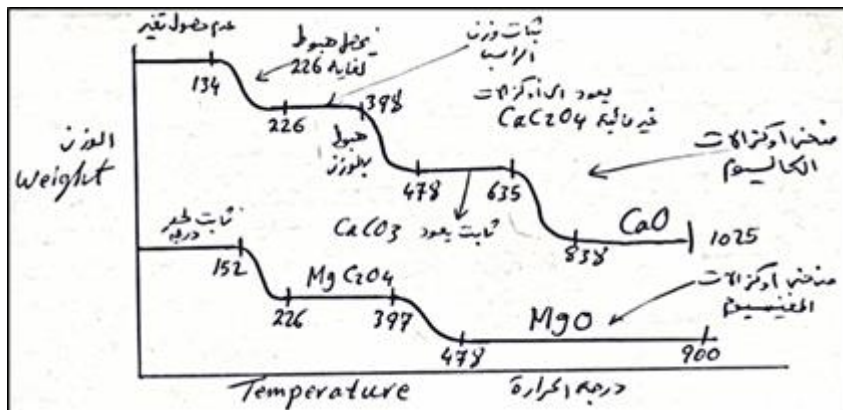 عدم حصول تغير
134
يحصل هبوط
لغاية 226
ثبات وزن
الراسب
226
398
هبوط
بالوزن
يعود الى أوكزالات
غير مائية CaC2O4
478
635
ثابت يعود CaCO3
منحنى أوكزالات
الكالسيوم
838
CaO
1025
الوزن
Weight
ثابت لحد
درجة
152
MgC2O4
226
397
478
MgO
900
منحنى أوكزالات
المغنيسيوم
Temperature
درجه الحرارة